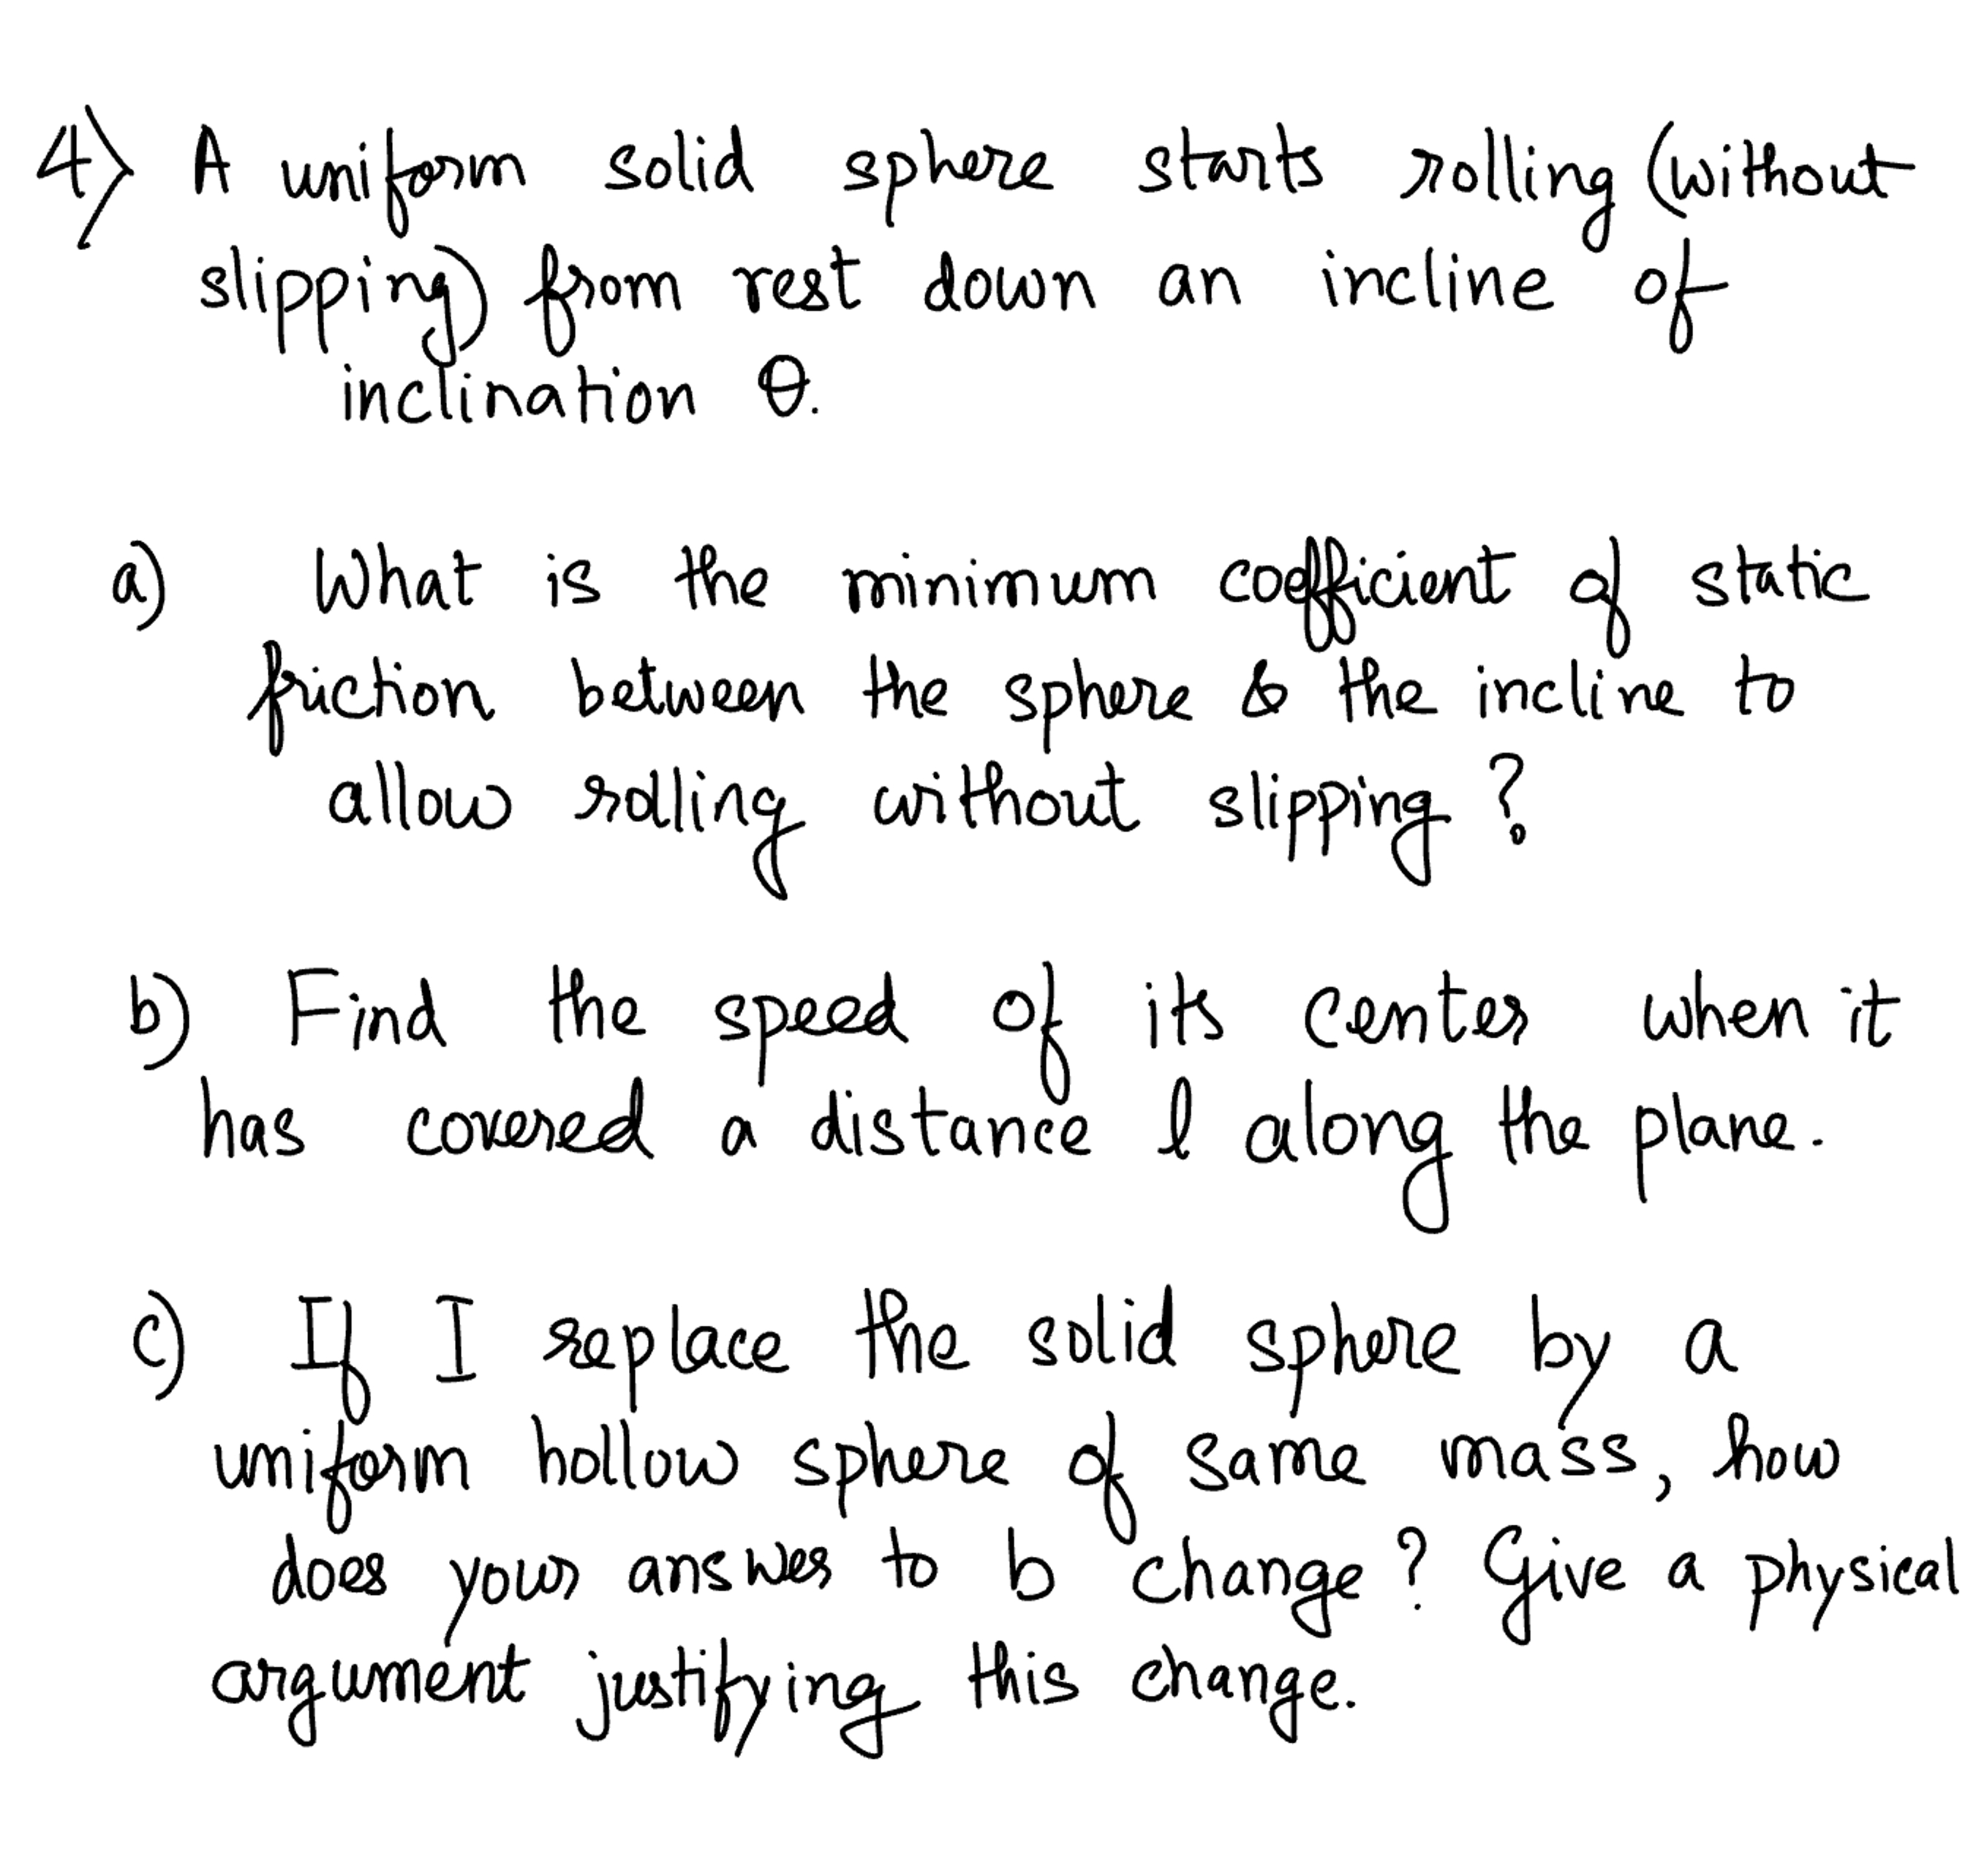 4) A uniform solid sphere starts rolling (without
slipping) from rest down an incline of
inclination θ.
a) What is the minimum coefficient of static
friction between the sphere & the incline to
allow rolling without slipping ?
b) Find the speed of its center when it
has covered a distance l along the plane.
c) If I replace the solid sphere by a
uniform hollow sphere of same mass, how
does your answer to b change ? Give a physical
argument justifying this change.